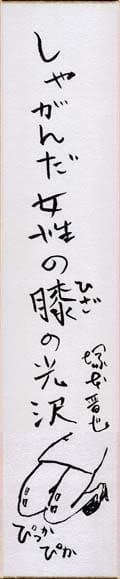 しゃがんだ女性の膝の光沢
ひざ
塚本晋也
ぴっか
ぴか